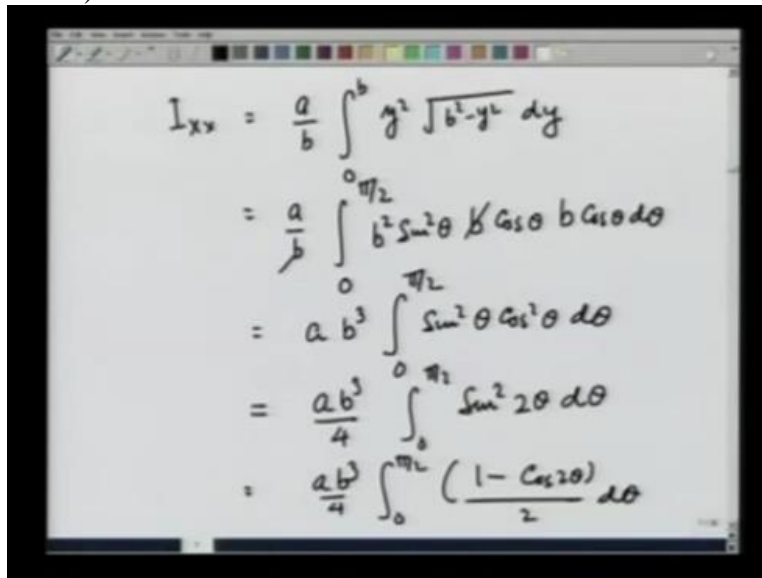 I_xx = a/b ∫_0^b y² √(b²-y²) dy
= a/b ∫_0^{π/2} b² Sin²θ b Cosθ b Cosθ dθ
= a b³ ∫_0^{π/2} Sin²θ Cos²θ dθ
= ab³/4 ∫_0^{π/2} Sin² 2θ dθ
= ab³/4 ∫_0^{π/2} (1 - Cos2θ)/2 dθ